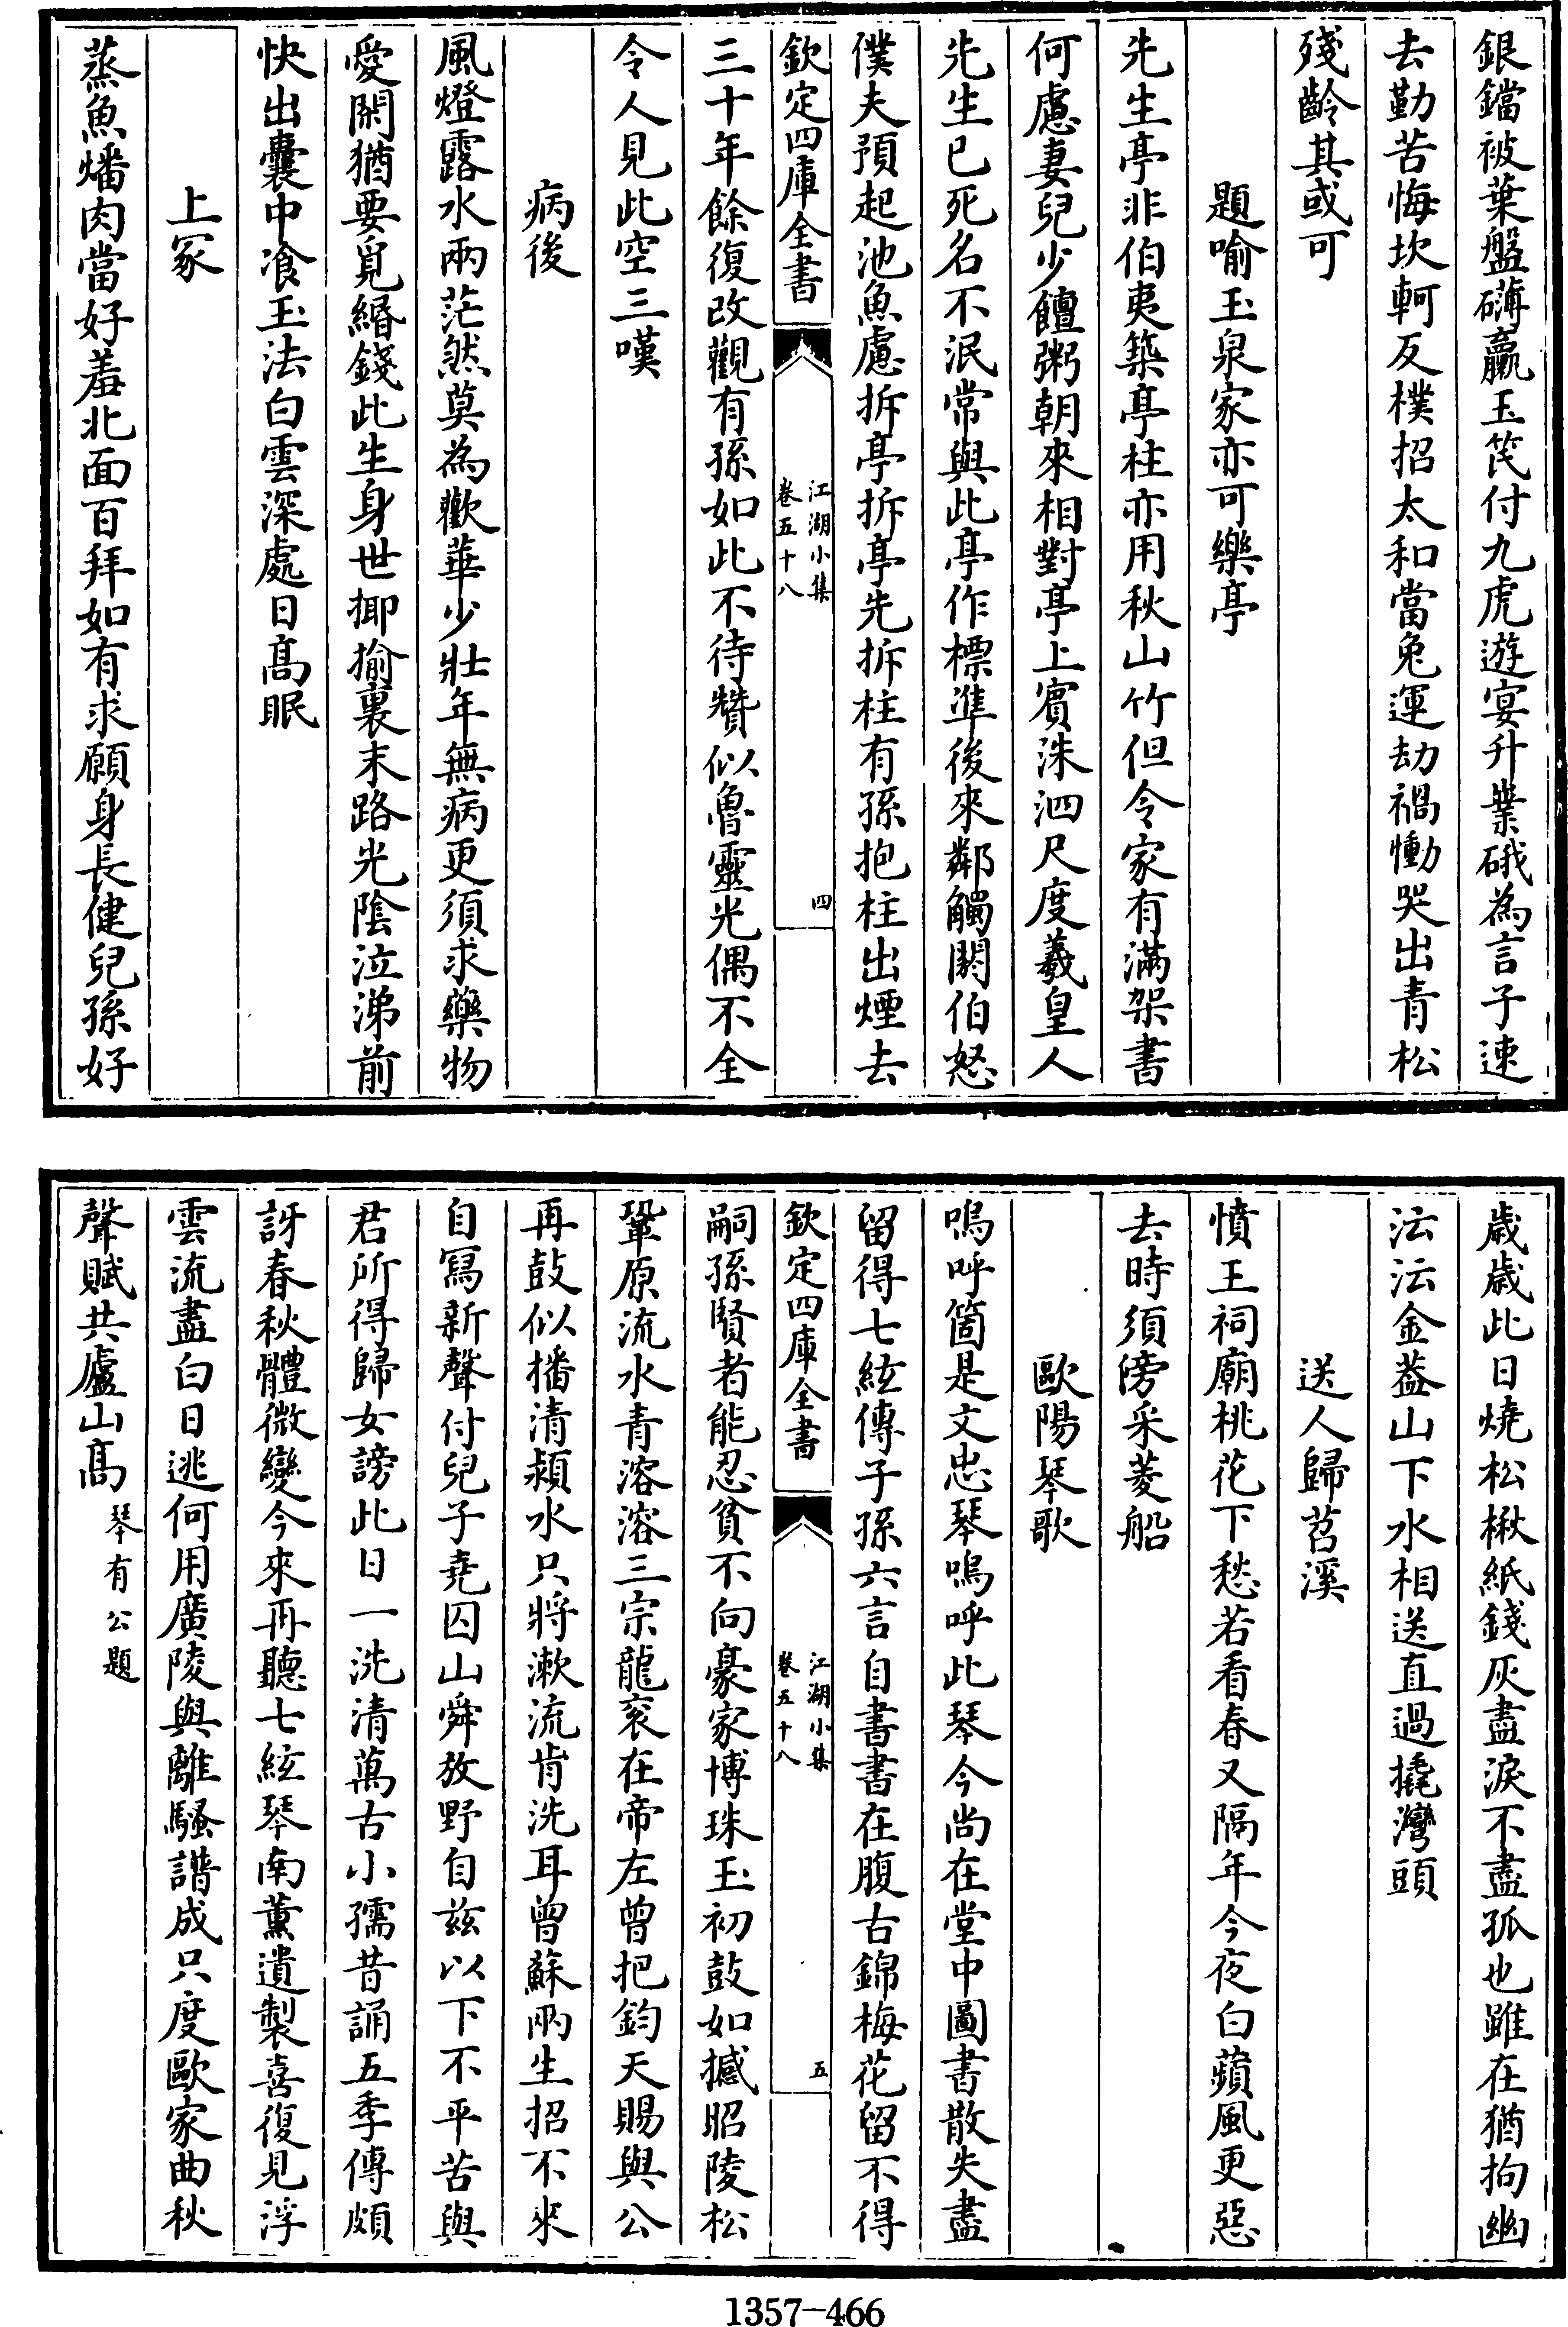 銀鐺被葉盤礴贏玉笩付九虎遊宴升業硪為言子速
去勤苦悔坎軻反樸招太和當兔運劫禍慟哭出青松
殘齡其或可
題喻玉泉家亦可樂亭
先生亭非伯夷築亭柱亦用秋山竹但令家有滿架書
何慮妻兒少饘粥朝來相對亭上賓洙泗尺度羲皇人
先生已死名不泯常與此亭作標準後來鄰觸閼伯怒
僕夫預起池魚慮拆亭拆亭先拆柱有孫抱柱出煙去
欽定四庫全書
江湖小集
卷五十八
四
三十年餘復改觀有孫如此不待贊似魯靈光偶不全
令人見此空三嘆
病後
風燈露水兩茫然莫為歡華少壯年無病更須求藥物
愛閑猶要覓緡錢此生身世揶揄裏末路光陰泣涕前
快出囊中飡玉法白雲深處日髙眠
上冢
蒸魚燔肉當好羞北面百拜如有求願身長健兒孫好
歲歲此日燒松楸紙錢灰盡淚不盡孤也雖在猶拘幽
沄沄金葢山下水相送直過撓灣頭
送人歸苕溪
憤王祠廟桃花下愁若看春又隔年今夜白蘋風更惡
去時須傍采菱船
歐陽琴歌
嗚呼箇是文忠琴嗚呼此琴今尚在堂中圖書散失盡
留得七絃傳子孫六言自書書在腹古錦梅花留不得
欽定四庫全書
江湖小集
卷五十八
五
嗣孫賢者能忍貧不向豪家博珠玉初鼓如撼昭陵松
鞏原流水青溶溶三宗龍衮在帝左曾把鈞天賜與公
再鼓似播清潁水只將漱流肯洗耳曾蘇兩生招不來
自寫新聲付兒子堯囚山舜放野自兹以下不平苦與
君所得歸女謗此日一洗清萬古小孺昔誦五季傳頗
訝春秋體微變今來再聽七絃琴南薰遺製喜復見浮
雲流盡白日逃何用廣陵與離騷譜成只度歐家曲秋
聲賦共廬山髙琴有公題
1357-466